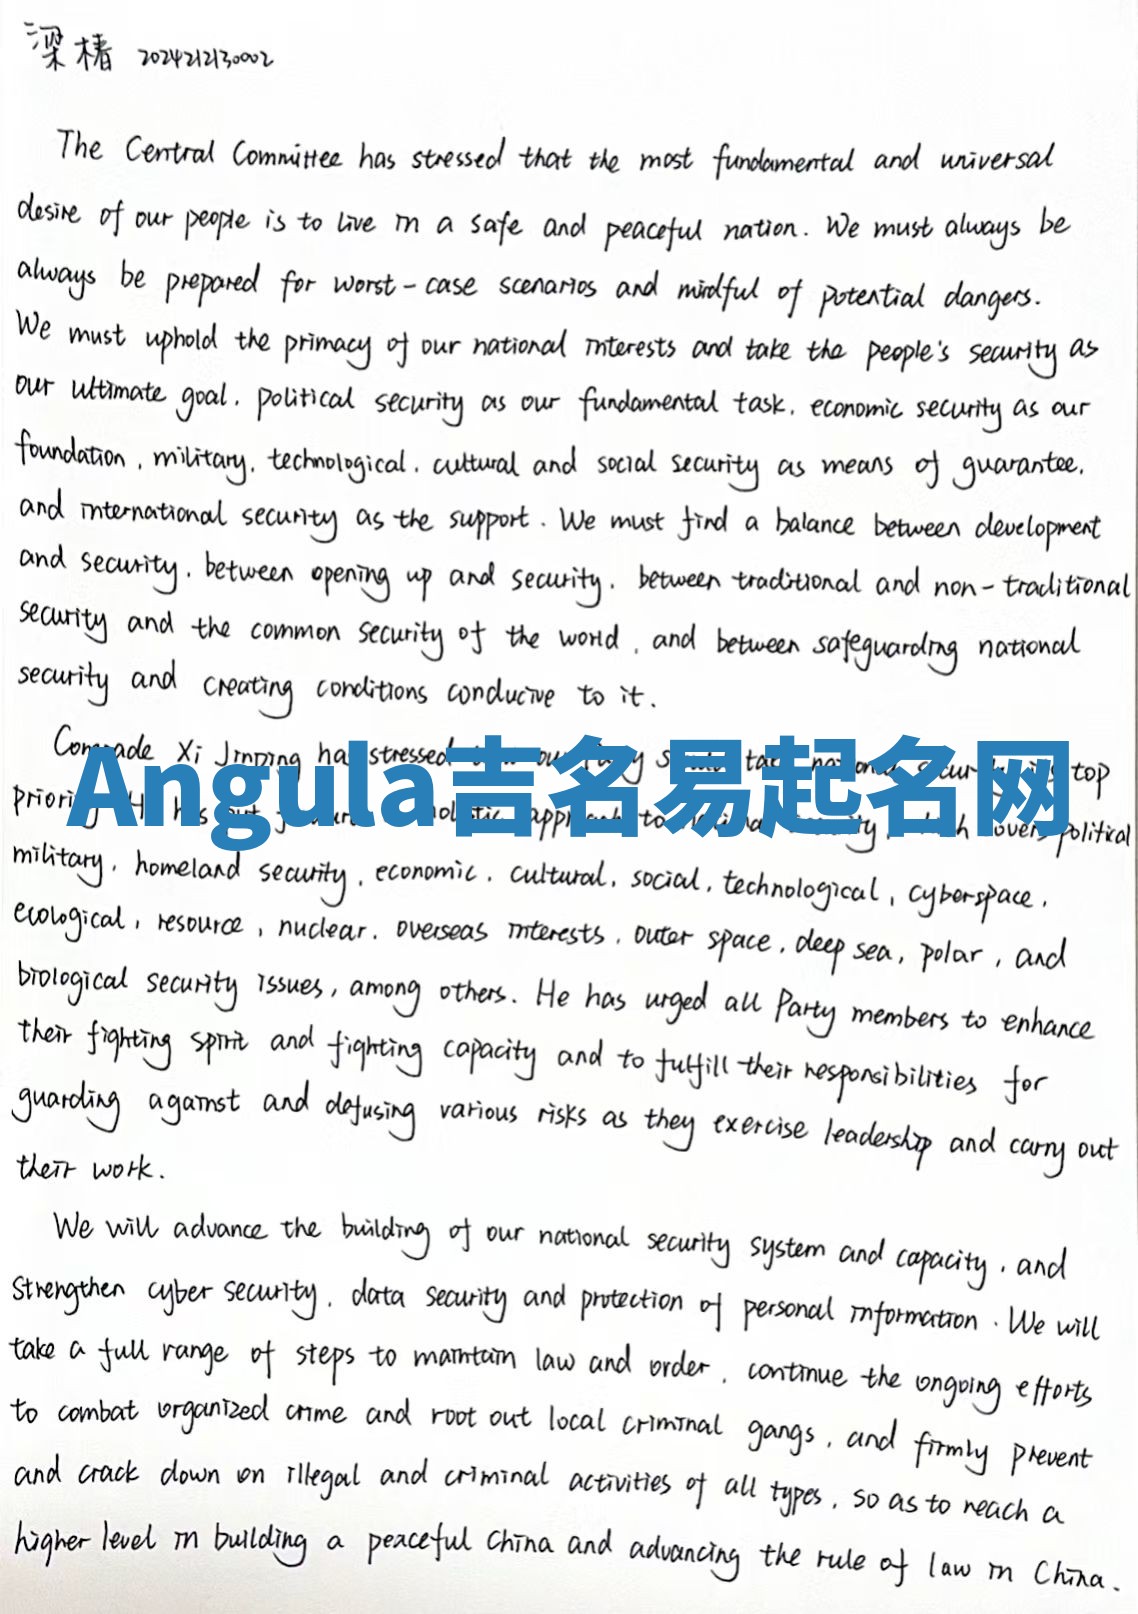 梁椿 2024212130002
The Central Committee has stressed that the most fundamental and universal
desire of our people is to live in a safe and peaceful nation. We must always be
always be prepared for worst-case scenarios and mindful of potential dangers.
We must uphold the primacy of our national interests and take the people's security as
our ultimate goal, political security as our fundamental task, economic security as our
foundation, military, technological, cultural and social security as means of guarantee,
and international security as the support. We must find a balance between development
and security, between opening up and security, between traditional and non-traditional
security and the common security of the world, and between safeguarding national
security and creating conditions conducive to it.
Comrade Xi Jinping has stressed top
Angula吉名易起名网
has to political
military, homeland security, economic, cultural, social, technological, cyberspace,
ecological, resource, nuclear, overseas interests, outer space, deep sea, polar, and
biological security issues, among others. He has urged all Party members to enhance
their fighting spirit and fighting capacity and to fulfill their responsibilities for
guarding against and defusing various risks as they exercise leadership and carry out
their work.
We will advance the building of our national security system and capacity, and
strengthen cyber security, data security and protection of personal information. We will
take a full range of steps to maintain law and order, continue the ongoing efforts
to combat organized crime and root out local criminal gangs, and firmly prevent
and crack down on illegal and criminal activities of all types, so as to reach a
higher level in building a peaceful China and advancing the rule of law in China.